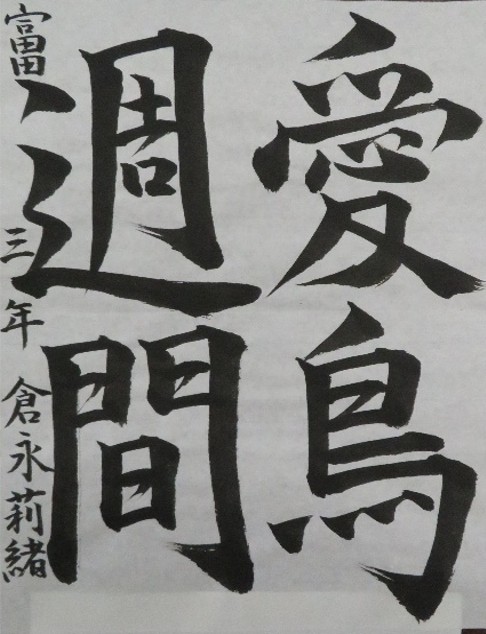 愛鳥
週間
富田 三年 倉永莉緒